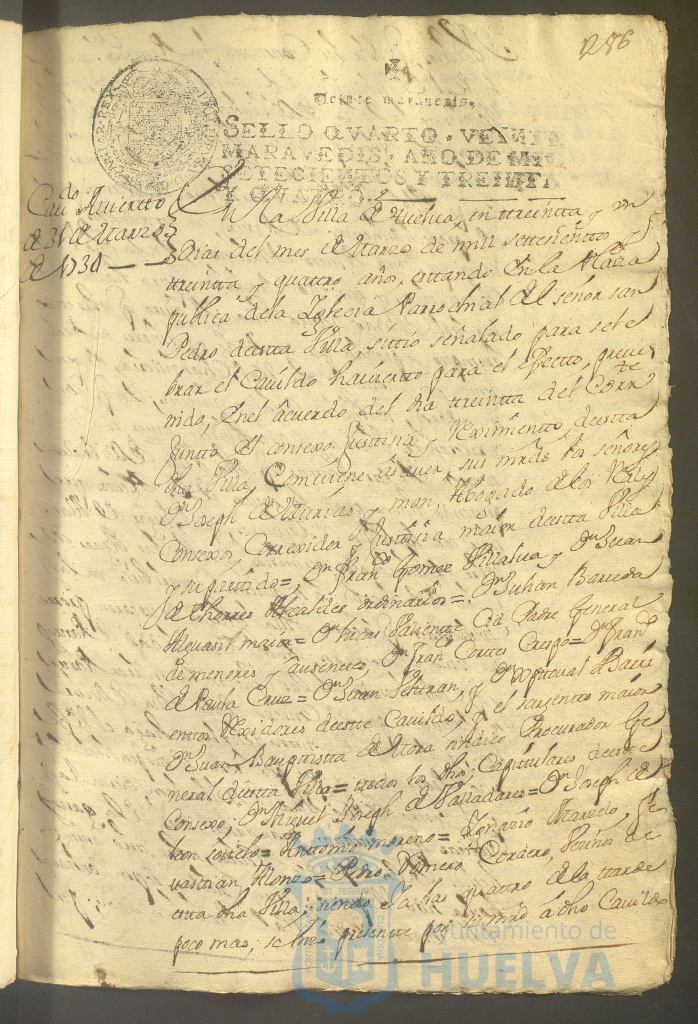 286
Veinte maravedis.
SELLO QVARTO, VEINTE
MARAVEDIS, AÑO DE MIL
SETECIENTOS Y TREINTA
Y QVATRO.
Cavdo Aviertto
de 31 de Marzo
de 1734
En la Villa de Huelva, en ttreintta y un
Dias del mes de Marzo de mil settecientto y
ttreintta y quattro años, esttando en la Plaza
publica de la Iglecia Parrochial del señor san
Pedro destta Villa, sittio señalado para sele
brar el Cavildo haviertto para el efectto, preve
nido, en el acuerdo del dia ttreintta del Corrte
Juntto el consexo Justtisia y Reximientto, destta
dha Villa, Combiene asaver, sus mrds los señores
Dn Joseph de Asturias y mon, Abogado de los Rs
Consexos Correxidor y Justtisia maior destta Villa
y su parttido=, Dn Franco Gomez Villalva y Dn Juan
de Thorres Alcaldes ordinarios= Dn Julian Barreda
Alguasil maior= Dn Lucas Padre General
de menores y ausenttes, Dn Franco Corttes Crespo= Dn Franco
de Paula Cruz= Dn Juan Belttran, y Dn Xpttoval Barri
enttos Rexidores destte Cavildo, y el sarxentto maior
Dn Juan Bauptistta de Mora sindico Procurador Ge
neral destta Villa= ttodos los dhos Capittulares destte
Consexo; Dn Miguel Joseph de Valladares= Dn Joseph de
leon = Anttonio moreno= Ignazio Se
vasttian, Alonzo= Pedro Romero Cordero, Vezinos de
estta dha Villa; siendo ia las quattro de la ttarde
poco mas, se hizo presentte por dho Cavildo
Ayuntamiento de
HUELVA